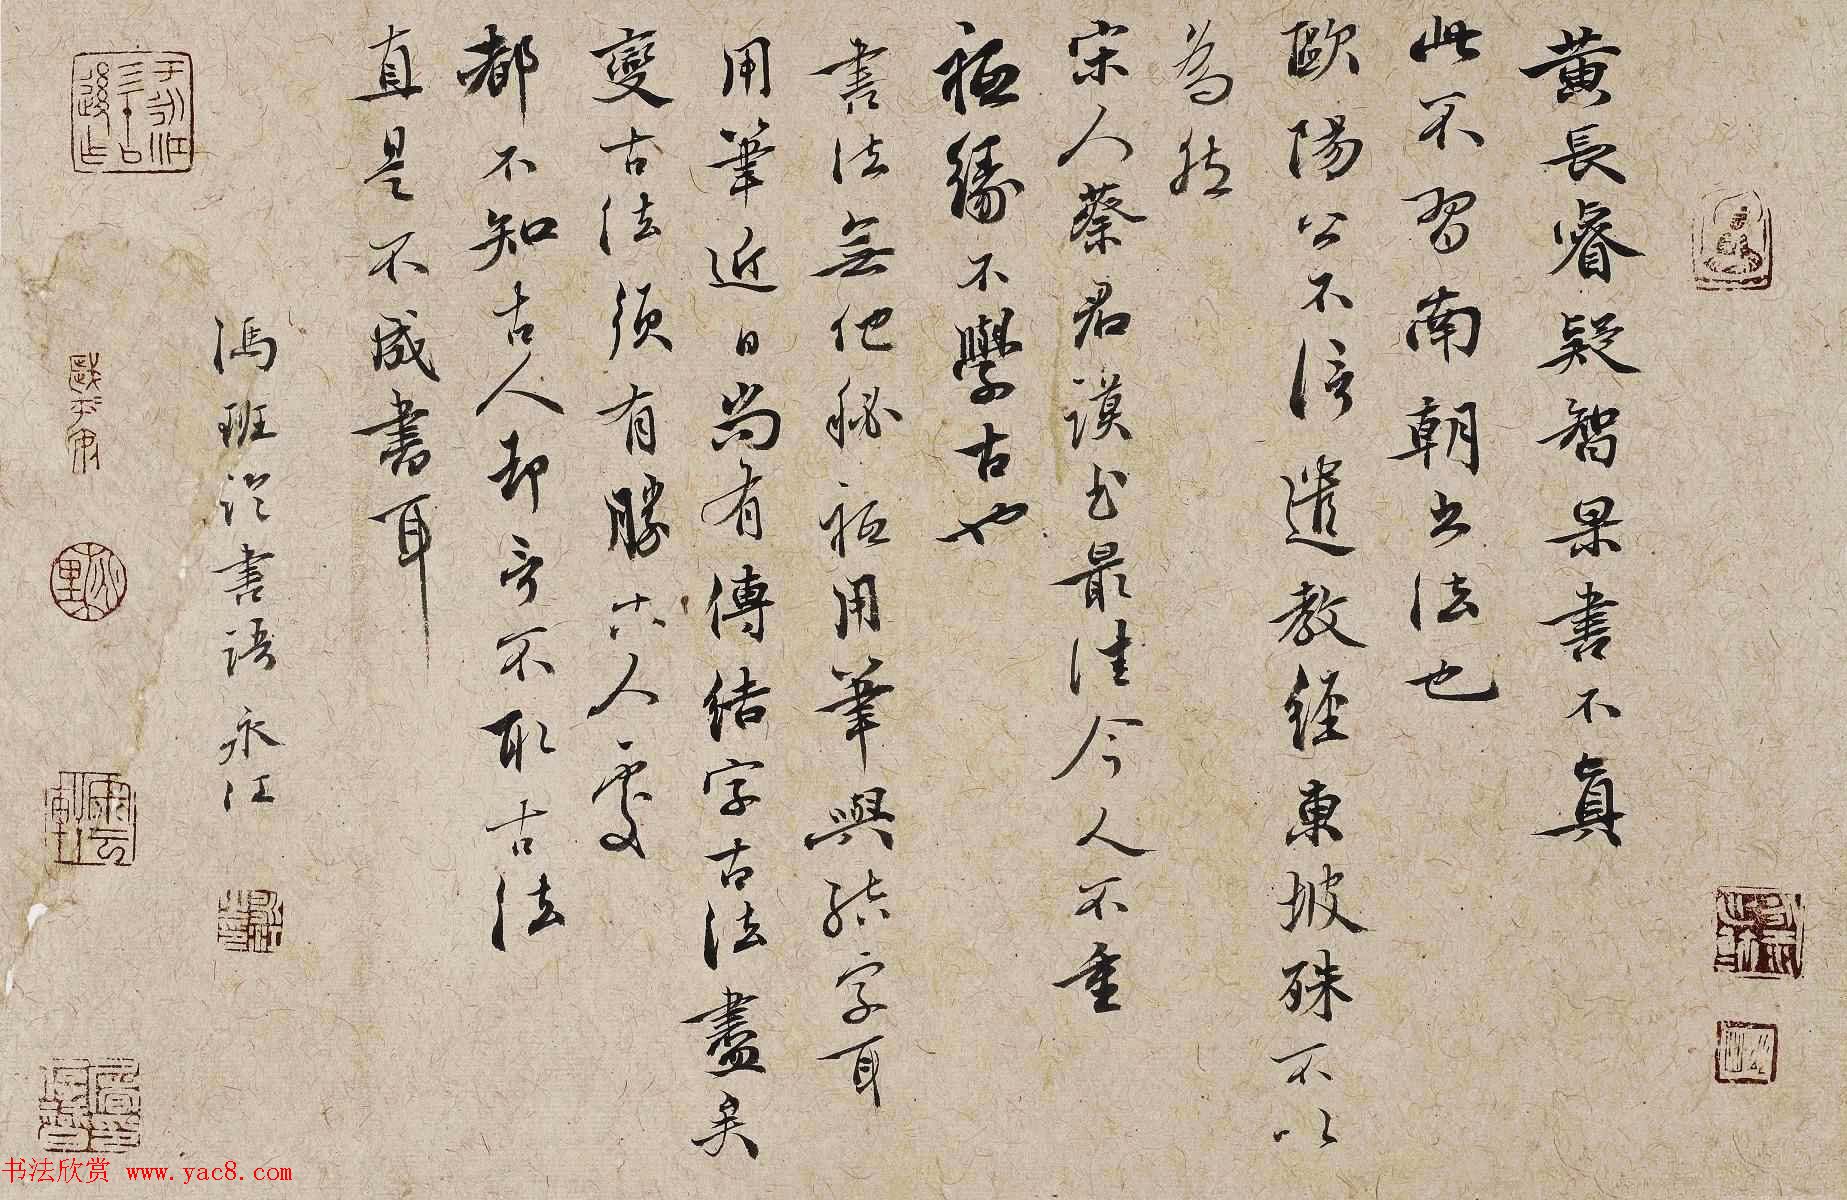 黄長睿疑智果書不真
此不習南朝書法也
歐陽公不信遺教經東坡殊不以
為然
宋人蔡君謨書最佳今人不重
祗緣不學古也
書法無他秘祗用筆與結字耳
用筆近日尚有傳結字古法盡矣
變古法須有勝古人處
都不知古人却言不取古法
直是不成書耳
馮班論書語 永江
书法欣赏 www.yac8.com